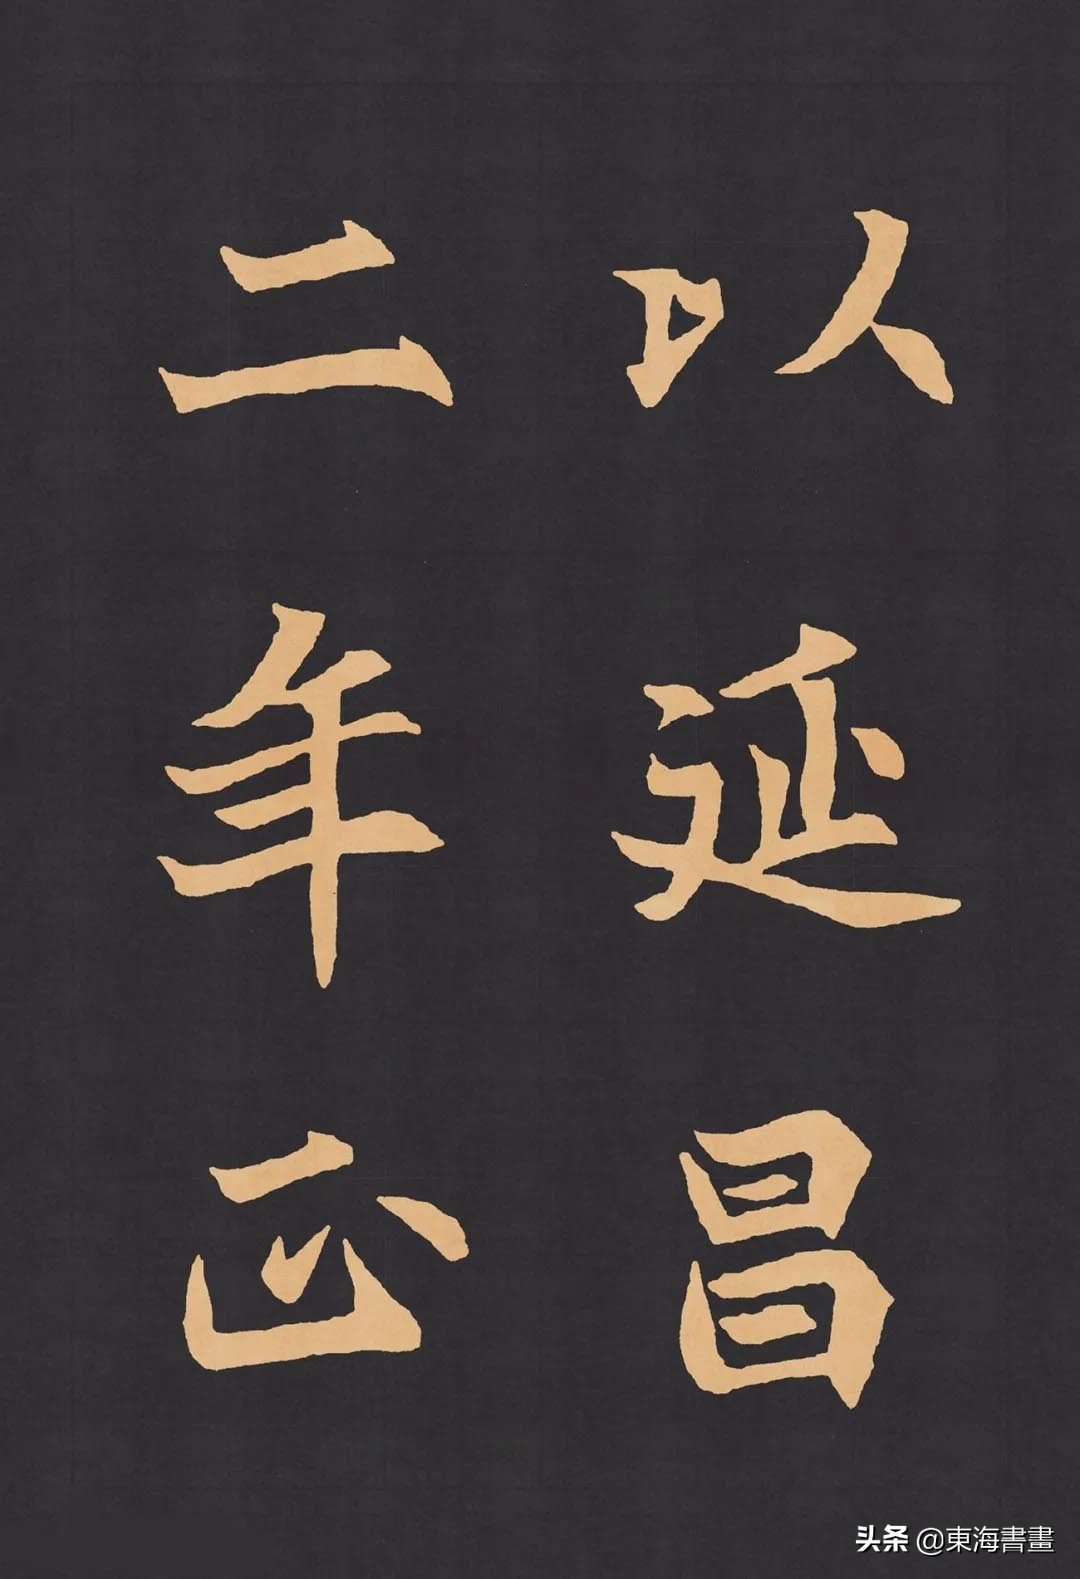 以延昌
二年正
头条 @東海書畫